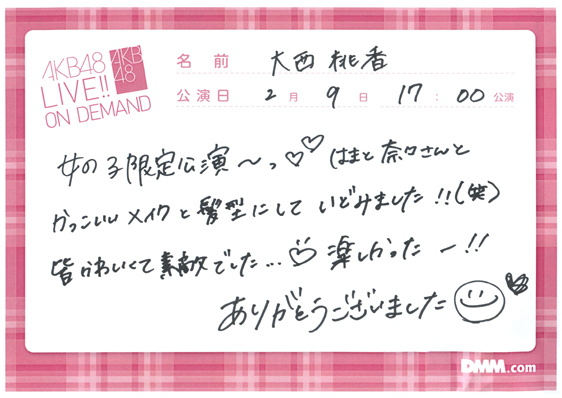 AKB48
LIVE!!
ON DEMAND
AKB
48
名前 大西桃香
公演日 2月9日 17:00公演
女の子限定公演〜っ♡♡ はまと奈々さんと
かっこいいメイクと髪型にしていどみました!!(笑)
皆かわいくて素敵でした…♡ 楽しかったー!!
ありがとうございました
DMM.com